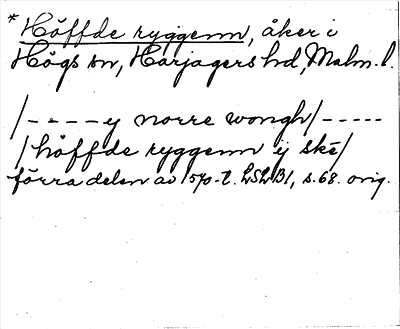 * Höffde ryggenn, åker i
Högs sn, Harjagers hd, Malm. l.
/----ÿ norre wongh/-----
/höffde ryggenn ÿ skē/
förra delen av 1570-t. LSLB1, s. 68. orig.